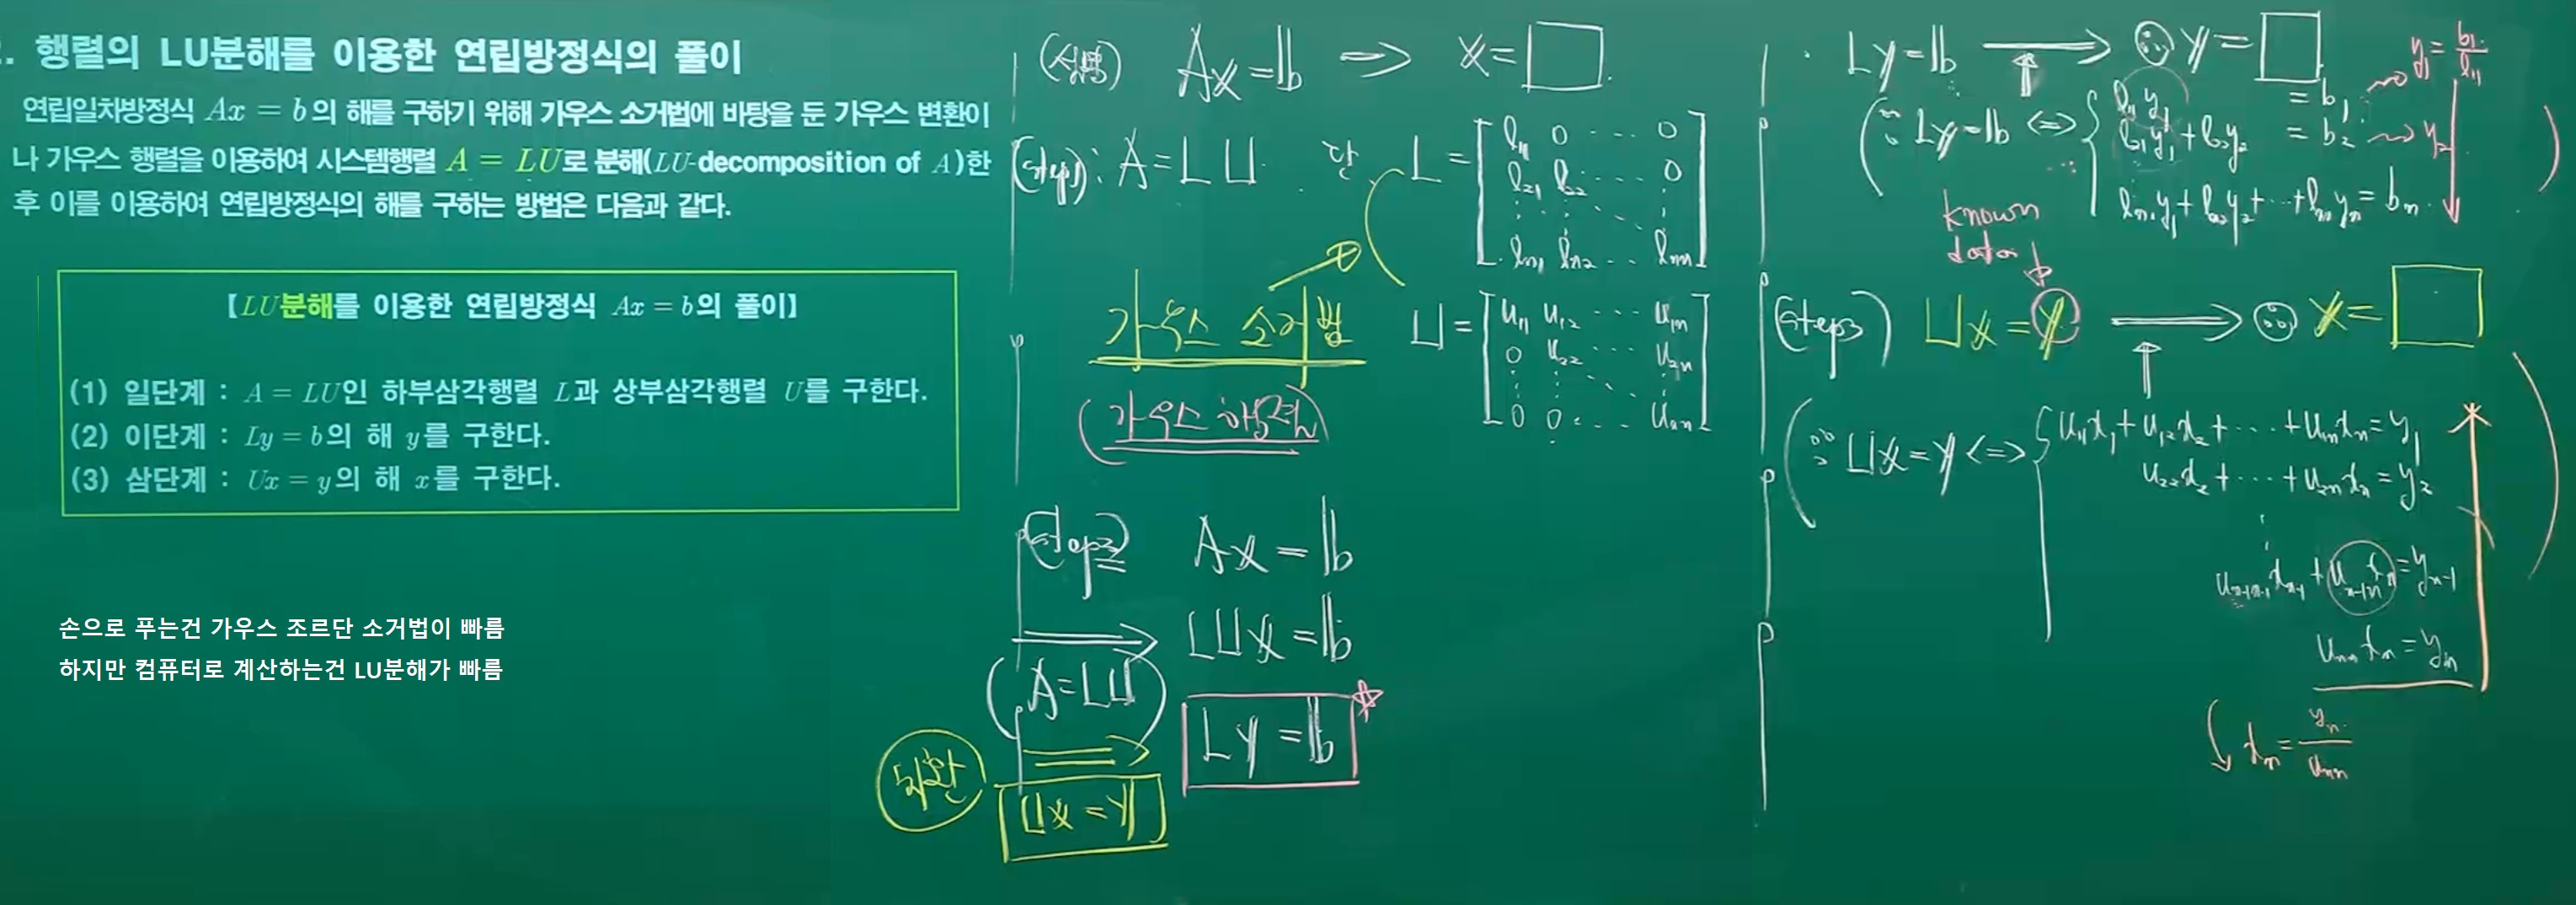 . 행렬의 LU분해를 이용한 연립방정식의 풀이
연립일차방정식 Ax = b의 해를 구하기 위해 가우스 소거법에 바탕을 둔 가우스 변환이
나 가우스 행렬을 이용하여 시스템행렬 A = LU로 분해(LU-decomposition of A)한
후 이를 이용하여 연립방정식의 해를 구하는 방법은 다음과 같다.
【LU분해를 이용한 연립방정식 Ax = b의 풀이】
(1) 일단계 : A = LU인 하부삼각행렬 L과 상부삼각행렬 U를 구한다.
(2) 이단계 : Ly = b의 해 y를 구한다.
(3) 삼단계 : Ux = y의 해 x를 구한다.
손으로 푸는건 가우스 조르단 소거법이 빠름
하지만 컴퓨터로 계산하는건 LU분해가 빠름
(설명) Ax = b ⇒ x = □
(step1) : A = LU. 단, L = [l11 0 ⋯ 0
l21 l22 ⋯ 0
⋮ ⋮ ⋱ ⋮
ln1 ln2 ⋯ lnn]
가우스 소거법
(가우스 행렬)
U = [u11 u12 ⋯ u1n
0 u22 ⋯ u2n
⋮ ⋮ ⋱ ⋮
0 0 ⋯ unn]
(step2) Ax = b
⇒ LUx = b
(A = LU)
⇒ Ly = b
치환
Ux = y
Ly = b ⇒ y = □
(∵ Ly = b ⇔ { l11y1 = b1 → y1 = b1/l11
l21y1 + l22y2 = b2 → y2
ln1y1 + ln2y2 + ⋯ + lnnyn = bn )
known
data
(step3) Ux = y ⇒ x = □
(∵ Ux = y ⇔ { u11x1 + u12x2 + ⋯ + u1nxn = y1
u22x2 + ⋯ + u2nxn = y2
⋮
un-1n-1xn-1 + un-1nxn = yn-1
unnxn = yn )
xn = yn/unn